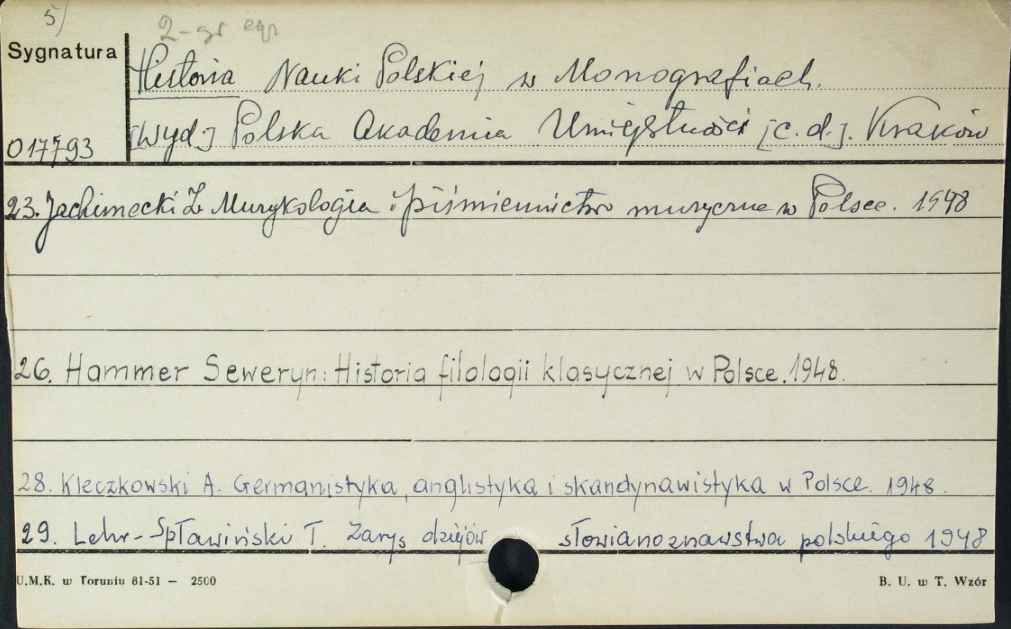 5)
2-gi egz
Sygnatura
Historia Nauki Polskiej w Monografiach.
017793 [Wyd.] Polska Akademia Umiejętności [c.d.]. Kraków
23. Jachimecki Z. Muzykologia i piśmiennictwo muzyczne w Polsce. 1948
26. Hammer Seweryn: Historia filologii klasycznej w Polsce. 1948.
28. Kleczkowski A. Germanistyka, anglistyka i skandynawistyka w Polsce. 1948.
29. Lehr-Spławiński T. Zarys dziejów słowianoznawstwa polskiego 1948
U.M.K. w Toruniu 61-51 — 2500 B. U. w T. Wzór